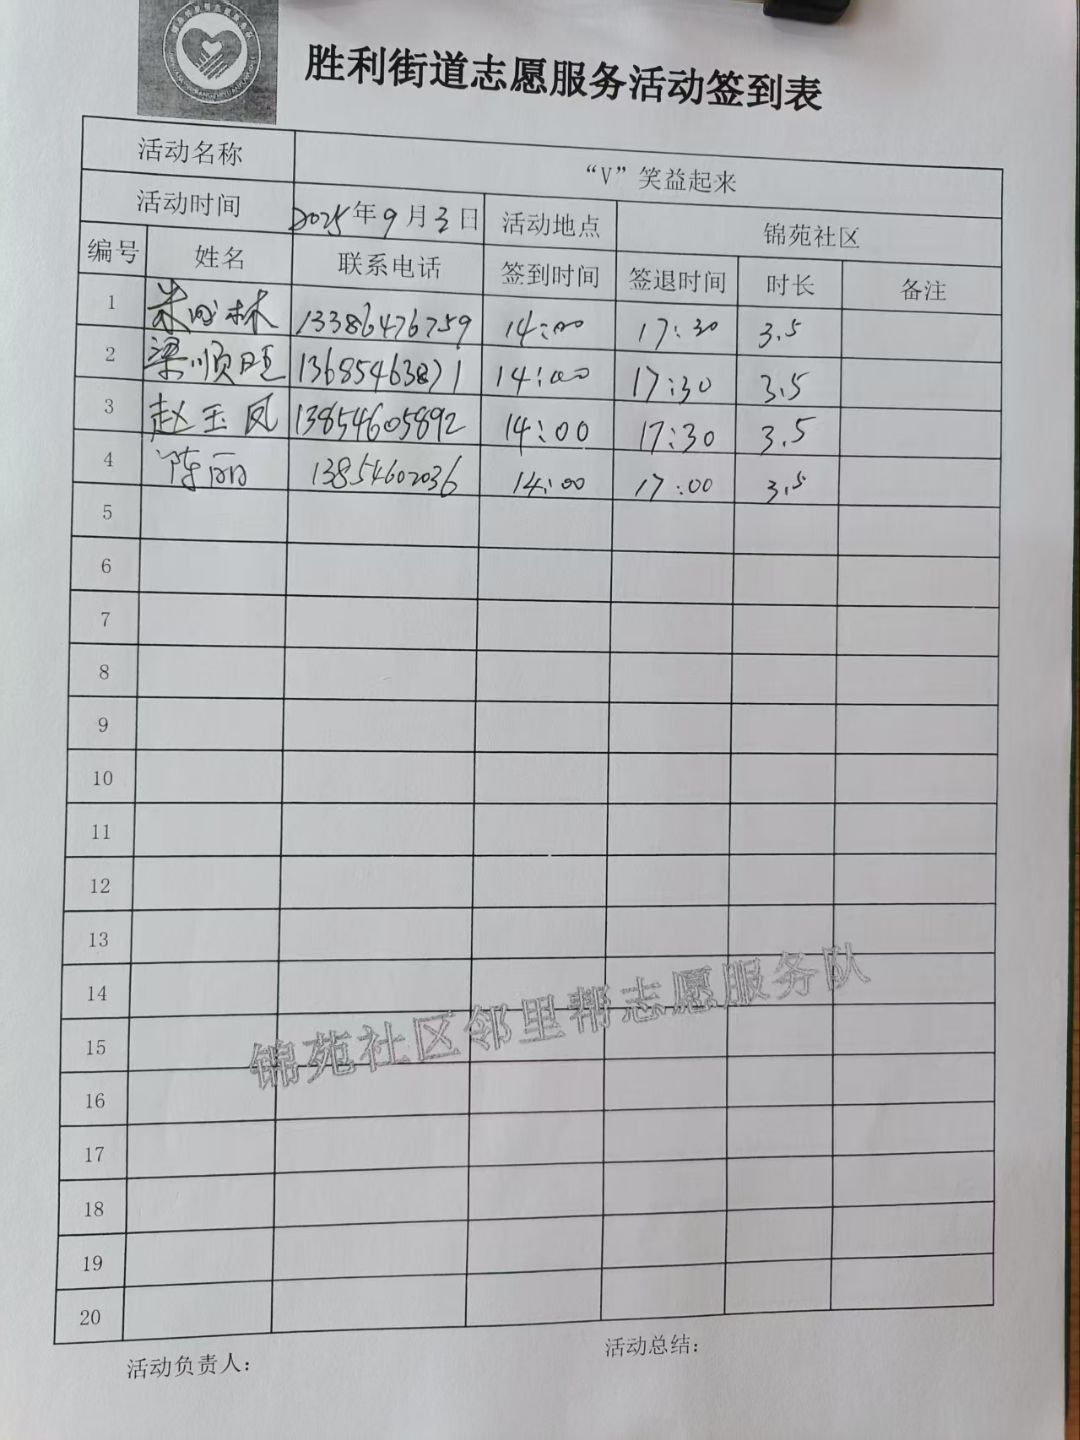 胜利街道志愿服务活动签到表
活动名称 “V”笑益起来
活动时间 2025年9月3日 活动地点 锦苑社区
编号 姓名 联系电话 签到时间 签退时间 时长 备注
1 朱 林 13386476759 14:00 17:30 3.5
2 梁顺旺 13685463871 14:00 17:30 3.5
3 赵玉凤 13854605892 14:00 17:30 3.5
4 陈丽 13854602036 14:00 17:00 3.5
5
6
7
8
9
10
11
12
13
14
15
16
17
18
19
20
锦苑社区邻里帮志愿服务队
活动负责人：
活动总结：